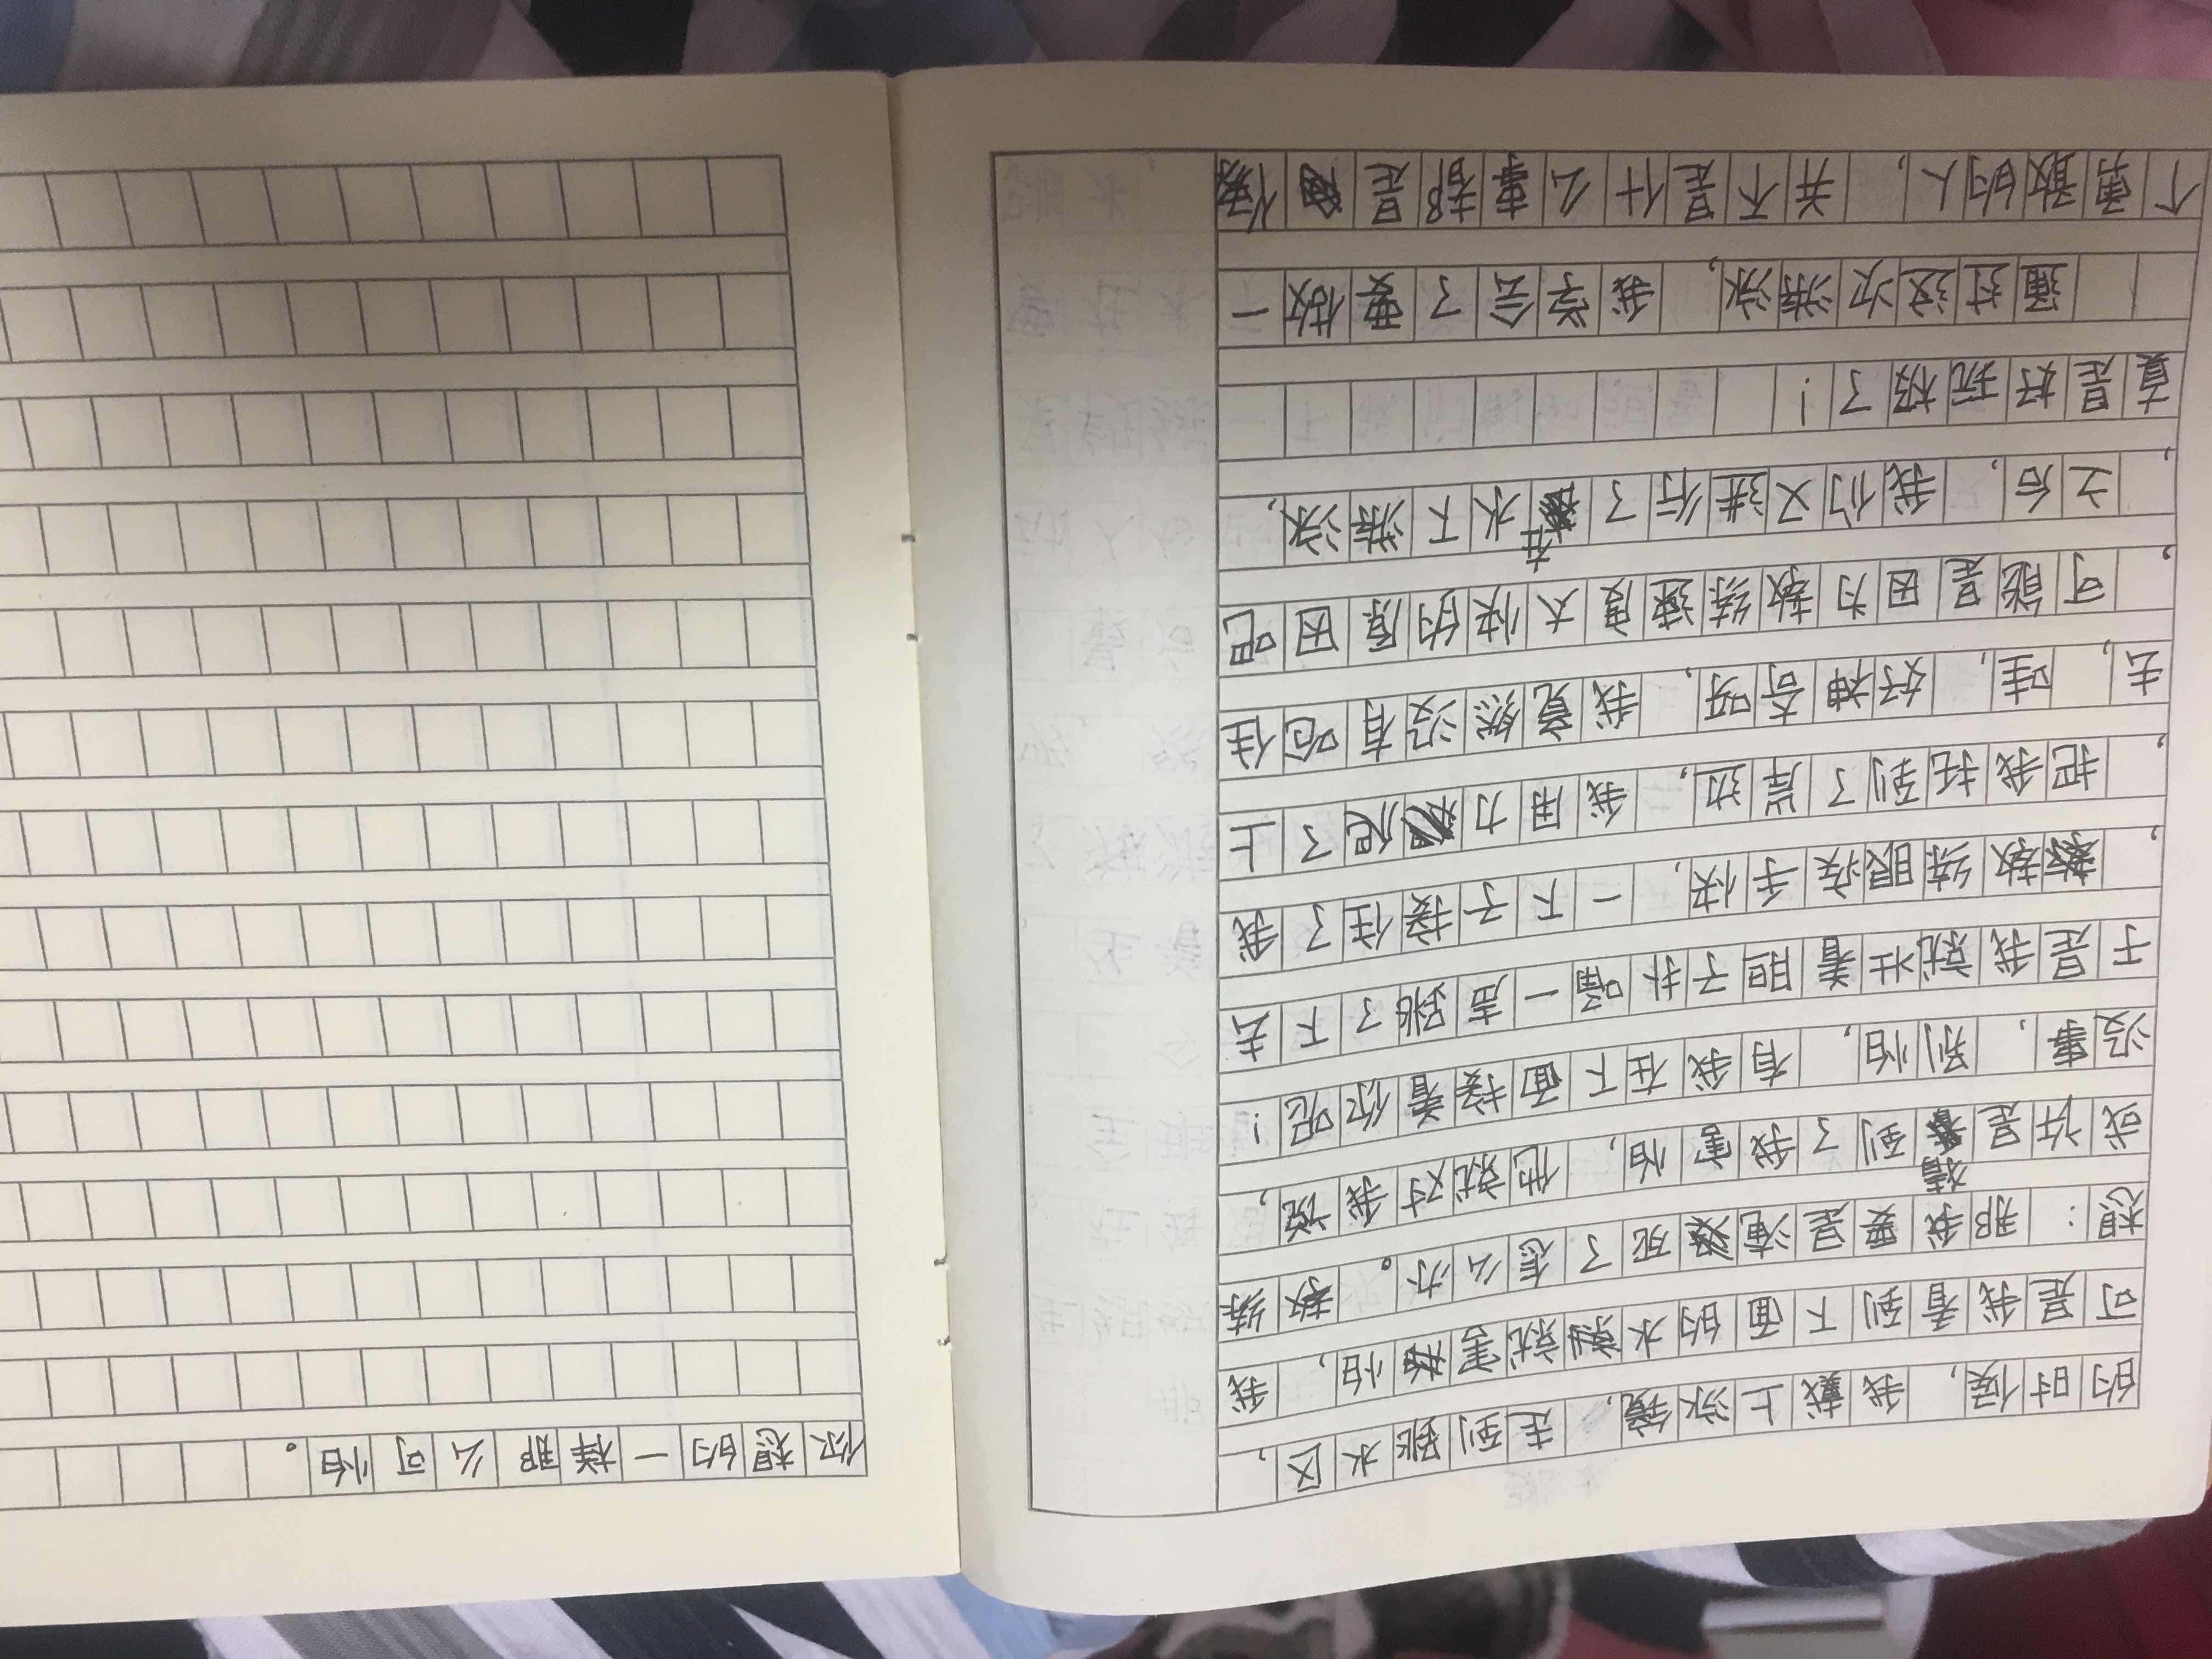 的时候，我戴上泳镜，走到跳水区，
可是我看到下面的水就害怕，我
想：那我要是淹死了怎么办。教练
或许是猜到了我害怕，他就对我说，
没事，别怕，有我在下面接着你呢！
于是我就壮着胆子扑嗵一声跳了下去
，教练眼疾手快，一下子接住了我
，把我托到了岸边，我用力爬了上
去，哇，好神奇呀，我竟然没有呛住
，可能是因为教练速度太快的原因吧
，之后，我们又进行了在水下游泳，
真是好玩极了！
通过这次游泳，我学会了要做一
个勇敢的人，并不是什么事都是像
你想的一样那么可怕。